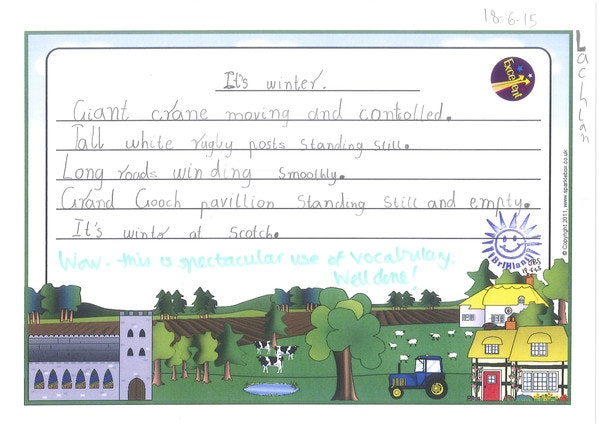 18-6-15
Lachlan
Excellent
It's winter.
Giant crane moving and controlled.
Tall white rugby posts standing still.
Long roads winding smoothly.
Grand Gooch pavillion standing still and empty.
It's winter at Scotch.
Brilliant
Wow. this is spectacular use of vocabulary.
Well done!
© Copyright 2011, www.sparklebox.co.uk